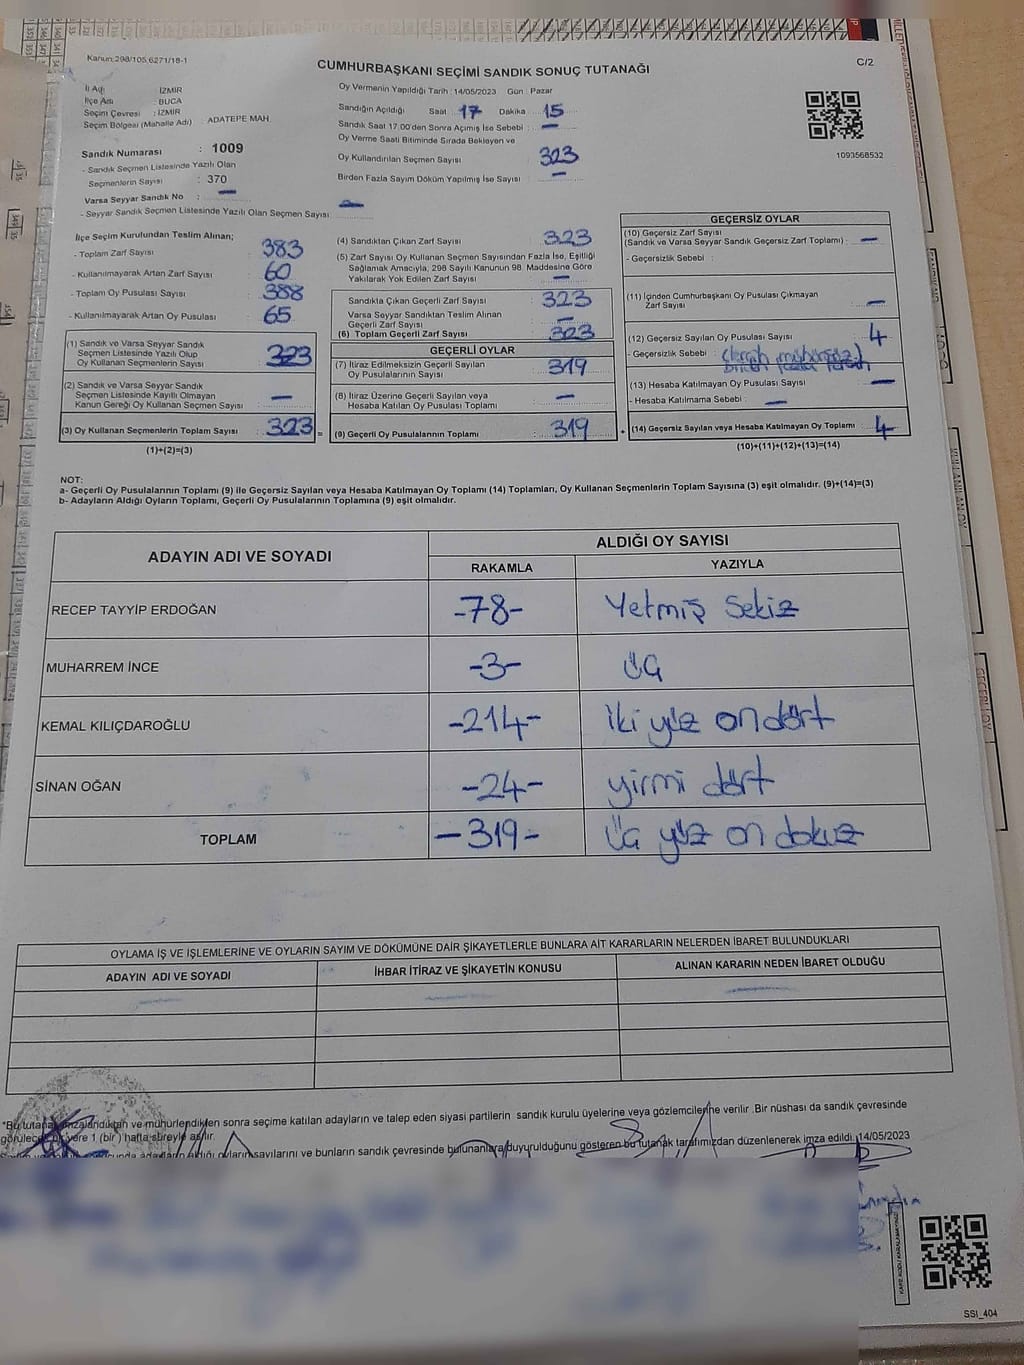 Kanun:298/105,6271/18-1
CUMHURBAŞKANI SEÇİMİ SANDIK SONUÇ TUTANAĞI
C/2
İl Adı : İZMİR
İlçe Adı : BUCA
Seçim Çevresi : İZMİR
Seçim Bölgesi (Mahalle Adı) : ADATEPE MAH.
Oy Vermenin Yapıldığı Tarih : 14/05/2023 Gün : Pazar
Sandığın Açıldığı Saat : 17 Dakika : 15
Sandık Saat 17.00'den Sonra Açımış İse Sebebi : —
Oy Verme Saati Bitiminde Sırada Bekleyen ve
Oy Kullandırılan Seçmen Sayısı 323
Birden Fazla Sayım Döküm Yapılmış İse Sayısı : —
1093568532
Sandık Numarası : 1009
- Sandık Seçmen Listesinde Yazılı Olan
Seçmenlerin Sayısı : 370
Varsa Seyyar Sandık No : —
- Seyyar Sandık Seçmen Listesinde Yazılı Olan Seçmen Sayısı: —
İlçe Seçim Kurulundan Teslim Alınan;
- Toplam Zarf Sayısı : 383
- Kullanılmayarak Artan Zarf Sayısı : 60
- Toplam Oy Pusulası Sayısı : 388
- Kullanılmayarak Artan Oy Pusulası : 65
(1) Sandık ve Varsa Seyyar Sandık
Seçmen Listesinde Yazılı Olup
Oy Kullanan Seçmenlerin Sayısı : 323
(2) Sandık ve Varsa Seyyar Sandık
Seçmen Listesinde Kayıtlı Olmayan
Kanun Gereği Oy Kullanan Seçmen Sayısı : —
(3) Oy Kullanan Seçmenlerin Toplam Sayısı : 323
(1)+(2)=(3)
(4) Sandıktan Çıkan Zarf Sayısı : 323
(5) Zarf Sayısı Oy Kullanan Seçmen Sayısından Fazla İse, Eşitliği
Sağlamak Amacıyla, 298 Sayılı Kanunun 98. Maddesine Göre
Yakılarak Yok Edilen Zarf Sayısı : —
Sandıkta Çıkan Geçerli Zarf Sayısı : 323
Varsa Seyyar Sandıktan Teslim Alınan
Geçerli Zarf Sayısı : —
(6) Toplam Geçerli Zarf Sayısı : 323
GEÇERLİ OYLAR
(7) İtiraz Edilmeksizin Geçerli Sayılan
Oy Pusulalarının Sayısı : 319
(8) İtiraz Üzerine Geçerli Sayılan veya
Hesaba Katılan Oy Pusulası Toplamı : —
(9) Geçerli Oy Pusulalarının Toplamı : 319
GEÇERSİZ OYLAR
(10) Geçersiz Zarf Sayısı
(Sandık ve Varsa Seyyar Sandık Geçersiz Zarf Toplamı) : —
- Geçersizlik Sebebi :
(11) İçinden Cumhurbaşkanı Oy Pusulası Çıkmayan
Zarf Sayısı : —
(12) Geçersiz Sayılan Oy Pusulası Sayısı : 4
- Geçersizlik Sebebi :
(13) Hesaba Katılmayan Oy Pusulası Sayısı : —
- Hesaba Katılmama Sebebi : —
(14) Geçersiz Sayılan veya Hesaba Katılmayan Oy Toplamı : 4
(10)+(11)+(12)+(13)=(14)
NOT:
a- Geçerli Oy Pusulalarının Toplamı (9) ile Geçersiz Sayılan veya Hesaba Katılmayan Oy Toplamı (14) Toplamları, Oy Kullanan Seçmenlerin Toplam Sayısına (3) eşit olmalıdır. (9)+(14)=(3)
b- Adayların Aldığı Oyların Toplamı, Geçerli Oy Pusulalarının Toplamına (9) eşit olmalıdır.
ADAYIN ADI VE SOYADI ALDIĞI OY SAYISI
RAKAMLA YAZIYLA
RECEP TAYYİP ERDOĞAN -78- Yetmiş Sekiz
MUHARREM İNCE -3- Üç
KEMAL KILIÇDAROĞLU -214- iki yüz on dört
SİNAN OĞAN -24- yirmi dört
TOPLAM -319- Üç yüz on dokuz
OYLAMA İŞ VE İŞLEMLERİNE VE OYLARIN SAYIM VE DÖKÜMÜNE DAİR ŞİKAYETLERLE BUNLARA AİT KARARLARIN NELERDEN İBARET BULUNDUKLARI
ADAYIN ADI VE SOYADI İHBAR İTİRAZ VE ŞİKAYETİN KONUSU ALINAN KARARIN NEDEN İBARET OLDUĞU
*Bu tutanak imzalandıktan ve mühürlendikten sonra seçime katılan adayların ve talep eden siyasi partilerin sandık kurulu üyelerine veya gözlemcilerine verilir .Bir nüshası da sandık çevresinde
görülecek bir yere 1 (bir ) hafta süreyle asılır.
sayılarını ve bunların sandık çevresinde bulunanlara duyurulduğunu gösteren bu tutanak tarafımızdan düzenlenerek imza edildi. 14/05/2023
SSI_404